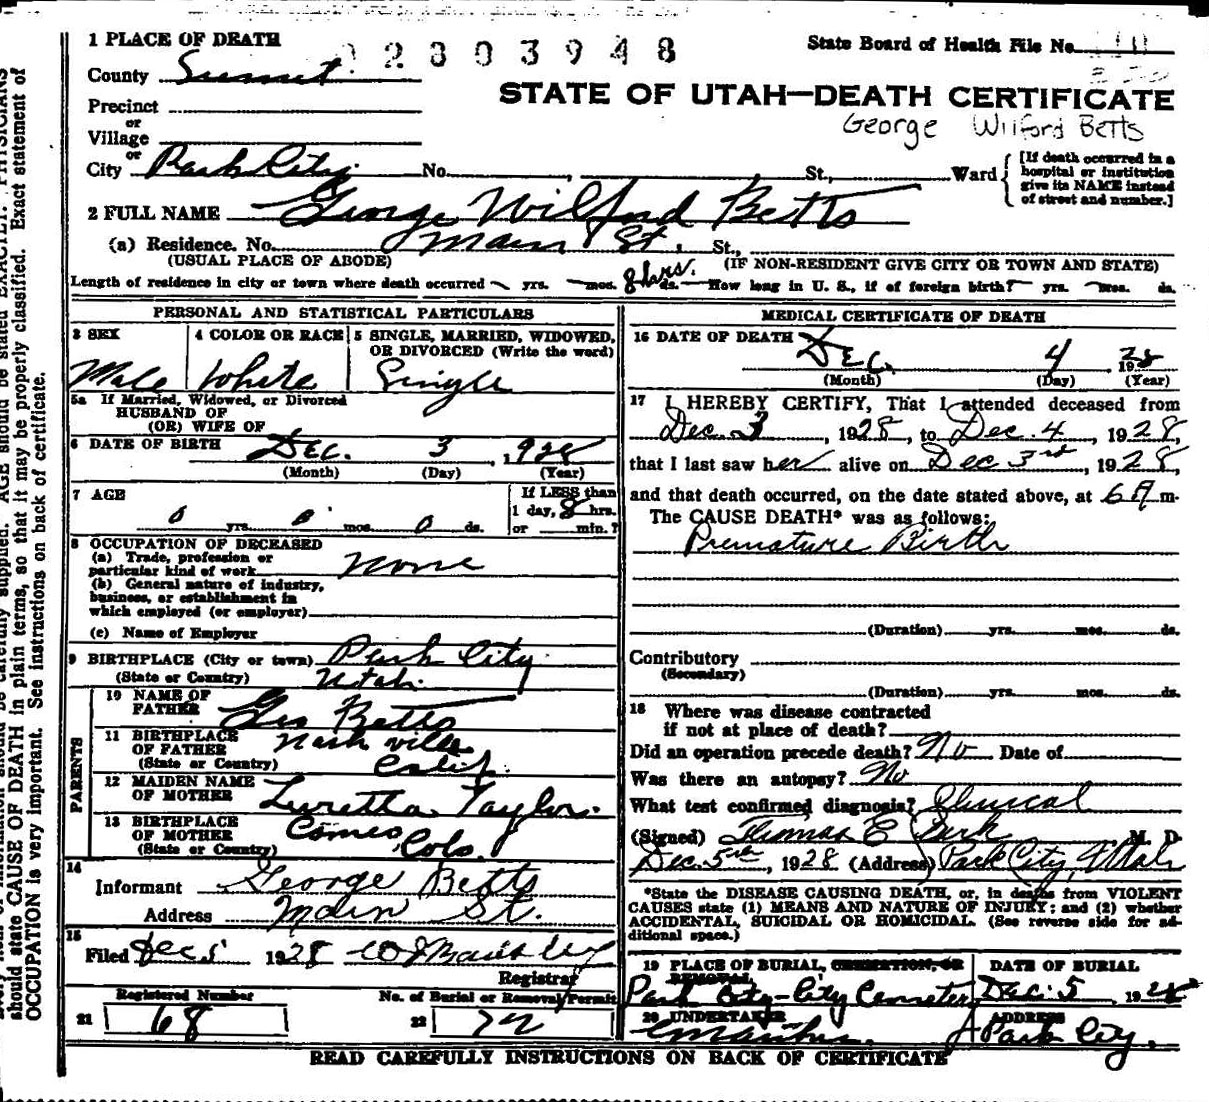 1 PLACE OF DEATH
2803948
State Board of Health File No.
County Summit
STATE OF UTAH—DEATH CERTIFICATE
Precinct
George Wilford Betts
or
Village
or
City Park City No. , St., Ward
[If death occurred in a hospital or institution give its NAME instead of street and number.]
2 FULL NAME George Wilford Betts
(a) Residence. No. Main St. St.,
(USUAL PLACE OF ABODE) (IF NON-RESIDENT GIVE CITY OR TOWN AND STATE)
Length of residence in city or town where death occurred yrs. mos. 8 hrs. ds. How long in U. S., if of foreign birth? yrs. mos. ds.
PERSONAL AND STATISTICAL PARTICULARS
3 SEX 4 COLOR OR RACE 5 SINGLE, MARRIED, WIDOWED, OR DIVORCED (Write the word)
Male White Single
5a If Married, Widowed, or Divorced
HUSBAND OF
(OR) WIFE OF
6 DATE OF BIRTH Dec. 3, 1928
(Month) (Day) (Year)
7 AGE If LESS than
1 day, 8 hrs.
0 yrs. 0 mos. 0 ds. or min.?
8 OCCUPATION OF DECEASED
(a) Trade, profession or
particular kind of work None
(b) General nature of industry,
business, or establishment in
which employed (or employer)
(c) Name of Employer
9 BIRTHPLACE (City or town) Park City
(State or Country) Utah
PARENTS
10 NAME OF
FATHER Geo Betts
11 BIRTHPLACE
OF FATHER Nashville
(State or Country) Calif.
12 MAIDEN NAME
OF MOTHER Luretta Taylor
13 BIRTHPLACE
OF MOTHER Como,
(State or Country) Colo.
14
Informant George Betts
Address Main St.
15
Filed Dec 5 1928
Registrar
Registered Number No. of Burial or Removal Permit
21 68 22 72
MEDICAL CERTIFICATE OF DEATH
16 DATE OF DEATH Dec. 4, 1928
(Month) (Day) (Year)
17 I HEREBY CERTIFY, That I attended deceased from
Dec. 3, 1928, to Dec. 4, 1928,
that I last saw her alive on Dec 3rd, 1928,
and that death occurred, on the date stated above, at 6 A m.
The CAUSE DEATH* was as follows:
Premature Birth
(Duration) yrs. mos. ds.
Contributory
(Secondary)
(Duration) yrs. mos. ds.
18 Where was disease contracted
if not at place of death?
Did an operation precede death? No Date of
Was there an autopsy? No
What test confirmed diagnosis? Clinical
(Signed) Thomas E M. D.
Dec. 5, 1928 (Address) Park City, Utah
*State the DISEASE CAUSING DEATH, or, in deaths from VIOLENT
CAUSES state (1) MEANS AND NATURE OF INJURY; and (2) whether
ACCIDENTAL, SUICIDAL OR HOMICIDAL. (See reverse side for ad-
ditional space.)
19 PLACE OF BURIAL, CREMATION, OR REMOVAL DATE OF BURIAL
Park City-City Cemetery Dec. 5 1928
20 UNDERTAKER ADDRESS
Park City.
READ CAREFULLY INSTRUCTIONS ON BACK OF CERTIFICATE
should state CAUSE OF DEATH in plain terms, so that it may be properly classified. Exact statement of
OCCUPATION is very important. See instructions on back of certificate.